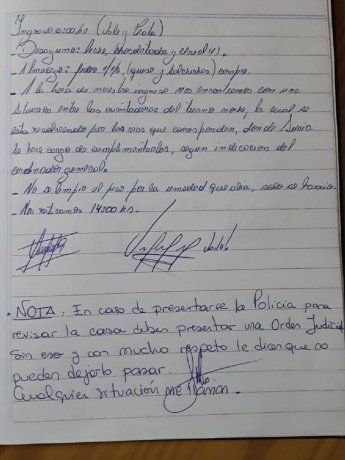 Ingreso 6:00 hs (Julo y Carla)
Desayuno: leche, chocolatada y cereal
- Almuerzo: (queso y salchichas) compre.
- A la hora de nuestro ingreso nos encontramos con una
situacion entre los orientadores del turno noche, la cual se
esta resolviendo por los que corresponden, donde Sonia
se hace cargo de cumplimentarlos, segun indicacion del
cordinador general.
- No se limpio el piso por la umedad que abia, solo se barrio
- Nos retiramos 14:00 hs.
NOTA: En caso de presentarse la Policia para
revisar la casa deben presentar una Orden Judicial
Sin eso y con mucho respeto le dicen que no
pueden dejarlo pasar.
Cualquier situación me llaman.